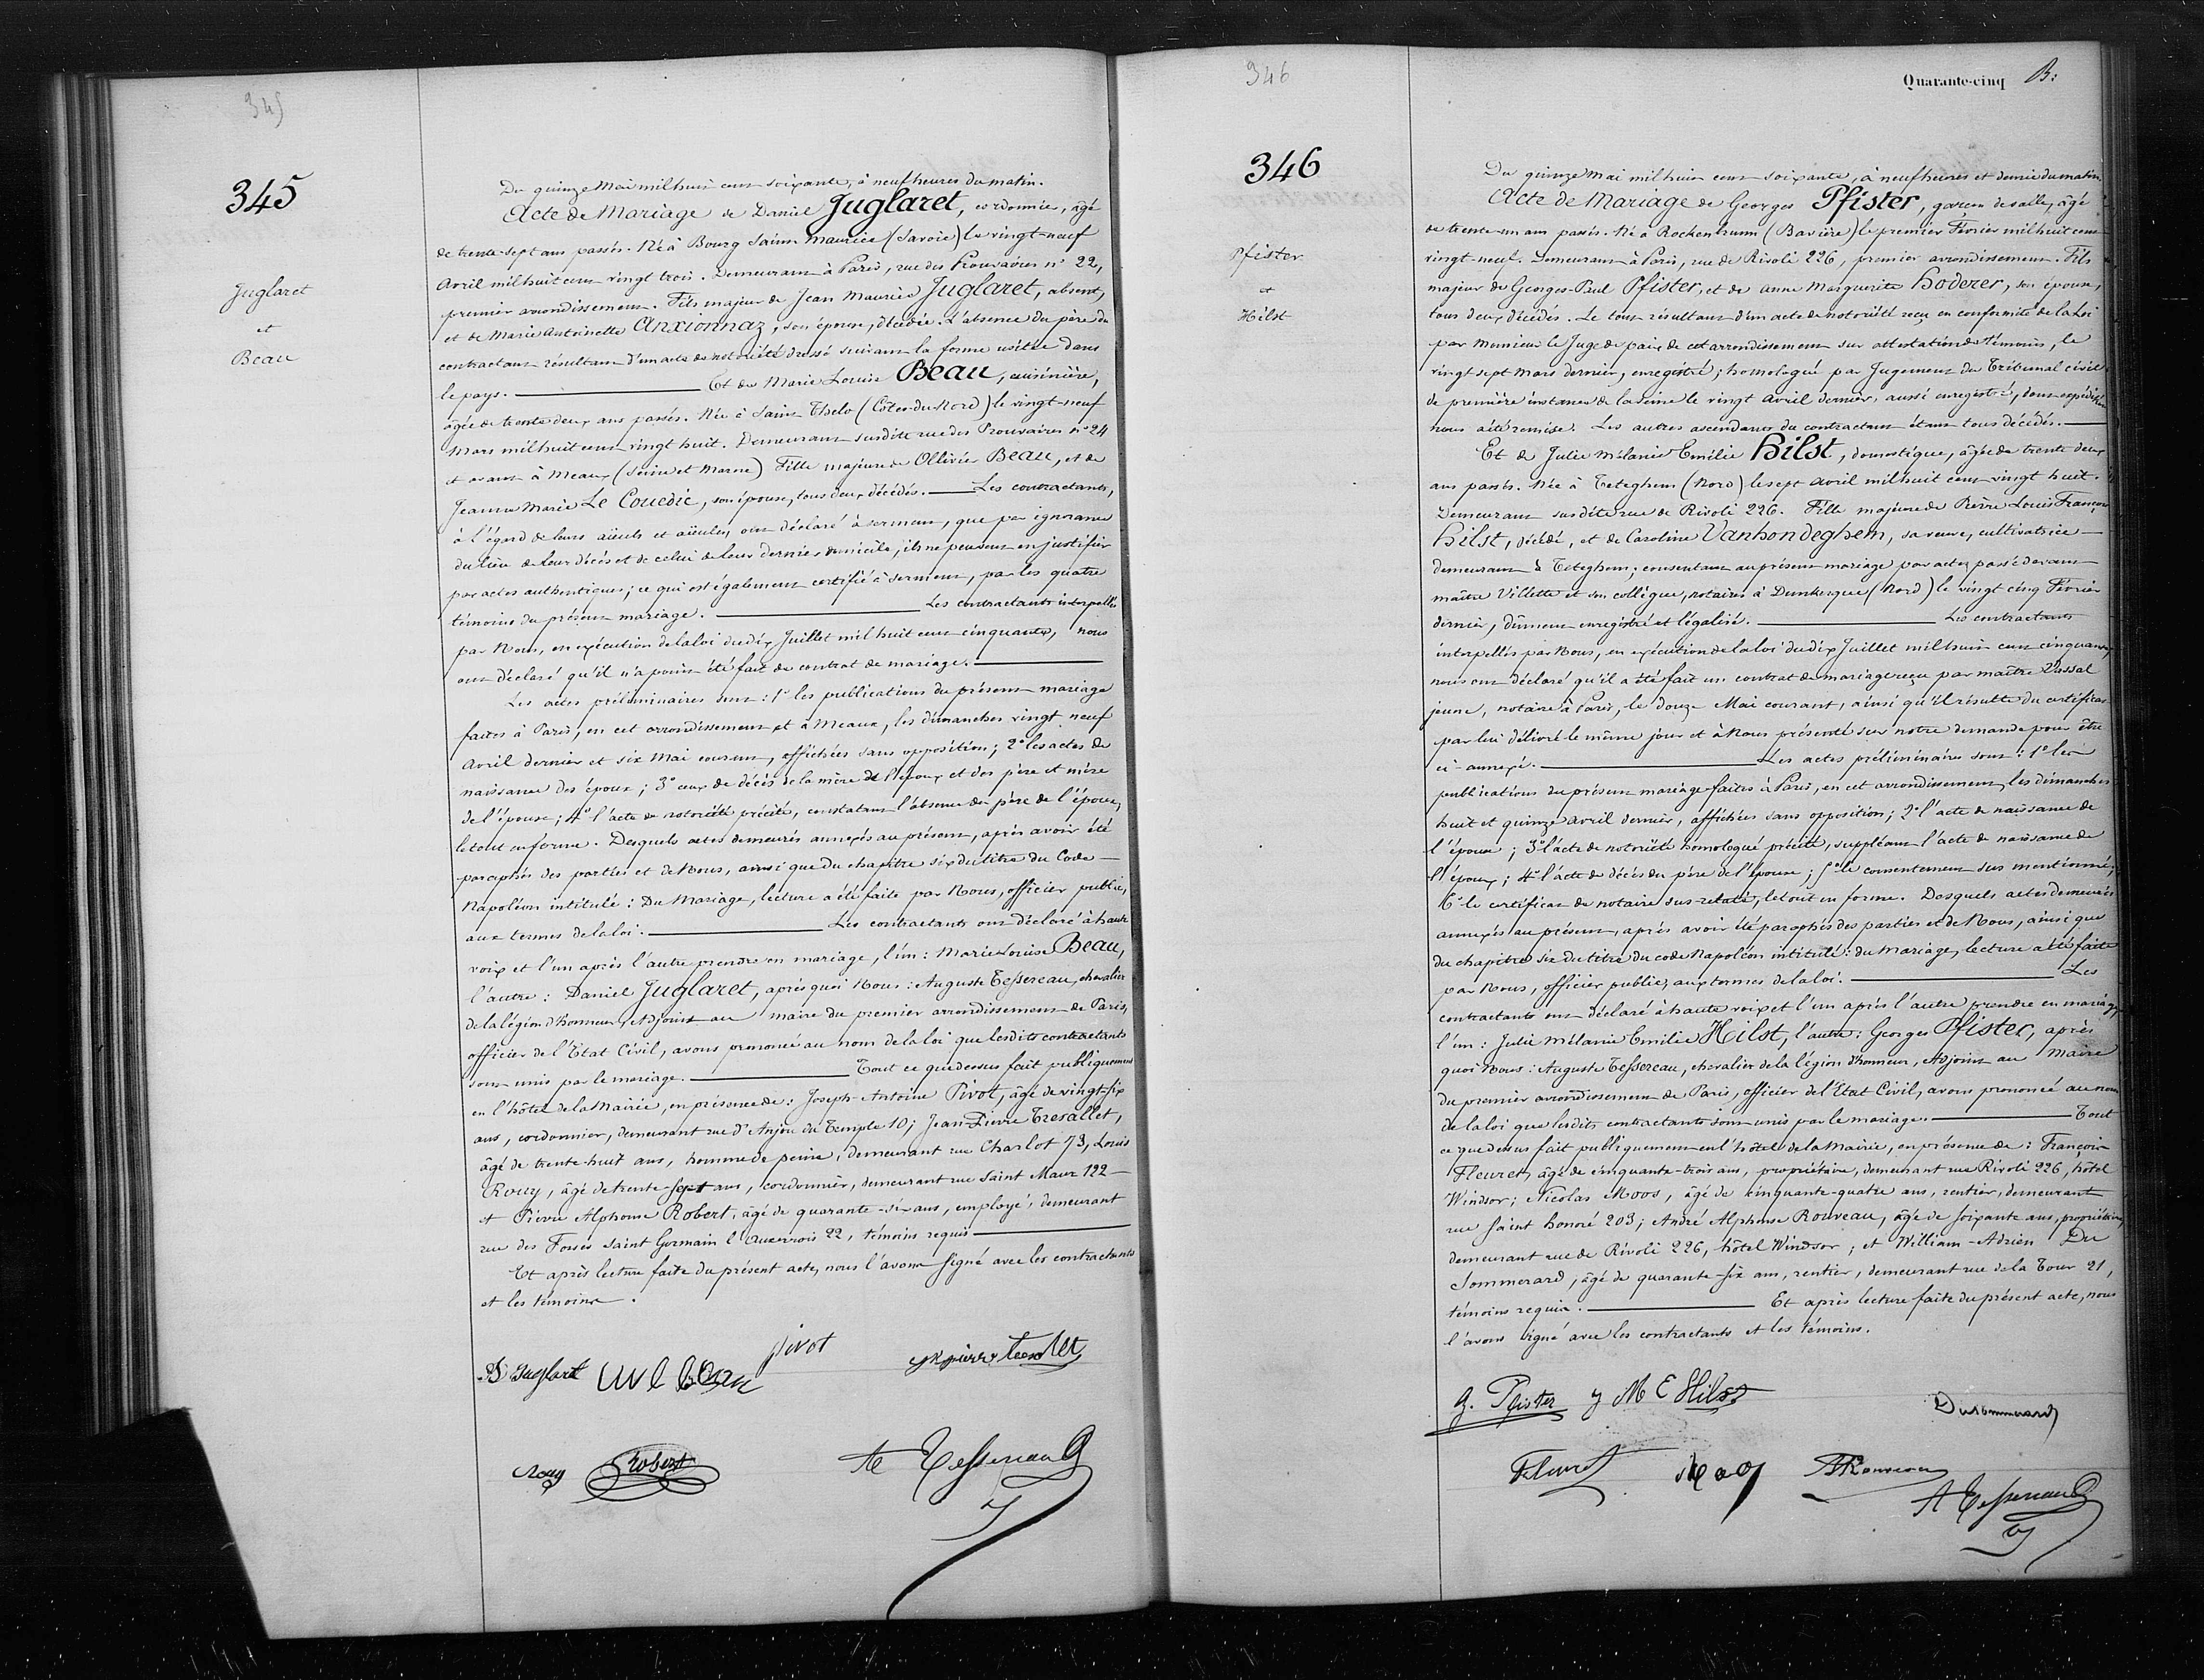 345
345
Juglaret
et
Beau
Du quinze Mai mil huit cent soixante, à neuf heures du matin.
Acte de Mariage de Daniel Juglaret, cordonnier, âgé
de trente-sept ans passés. Né à Bourg Saint Maurice (Savoie) le vingt-neuf
Avril mil huit cent vingt trois. Demeurant à Paris, rue des Prouvaires n° 22,
premier arrondissement. Fils majeur de Jean Maurice Juglaret, absent,
et de Marie Antoinette Anxionnaz, son épouse, décédée. L'absence du père du
contractant résultant d'un acte de notoriété dressé suivant la forme usitée dans
le pays. — Et de Marie Louise Beau, cuisinière,
âgée de trente deux ans passés. Née à Saint Thelo (Côtes-du-Nord) le vingt-neuf
Mars mil huit cent vingt huit. Demeurant susdite rue des Prouvaires n° 24
et avant à Meaux (Seine et Marne) Fille majeure de Ollivier Beau, et de
Jeanne Marie Le Couedic, son épouse, tous deux décédés. — Les contractants,
à l'égard de leurs aïeuls et aïeules, ont déclaré à serment, que par ignorance
du lieu de leur décès et de celui de leur dernier domicile, ils ne peuvent en justifier
par actes authentiques; ce qui est également certifié à serment, par les quatre
témoins du présent mariage. — Les contractants interpellés
par Nous, en exécution de la loi du dix Juillet mil huit cent cinquante, nous
ont déclaré qu'il n'a point été fait de contrat de mariage. —
Les actes préliminaires sont : 1° les publications du présent mariage
faites à Paris, en cet arrondissement et à Meaux, les dimanches vingt neuf
Avril dernier et six Mai courant, affichées sans opposition; 2° les actes de
naissance des époux; 3° ceux de décès de la mère de l'époux et des père et mère
de l'épouse; 4° l'acte de notoriété précité, constatant l'absence du père de l'époux,
le tout en forme. Desquels actes demeurés annexés au présent, après avoir été
paraphés des parties et de Nous, ainsi que du chapitre six du titre du Code
Napoléon intitulé : Du Mariage, lecture a été faite par Nous, officier public,
aux termes de la loi. — Les contractants ont déclaré à haute
voix et l'un après l'autre prendre en mariage, l'un : Marie Louise Beau,
l'autre : Daniel Juglaret, après quoi Nous : Auguste Tessereau, chevalier
de la légion d'honneur, Adjoint au maire du premier arrondissement de Paris,
officier de l'Etat Civil, avons prononcé au nom de la loi que lesdits contractants
sont unis par le mariage. — Tout ce que dessus fait publiquement
en l'hôtel de la Mairie, en présence de : Joseph-Antoine Pivot, âgé de vingt-six
ans, cordonnier, demeurant rue d'Anjou du Temple 10; Jean-Pierre Tresallet,
âgé de trente-huit ans, homme de peine, demeurant rue Charlot 73, Louis
Rouy, âgé de trente-sept ans, cordonnier, demeurant rue Saint Maur 122
et Pierre Alphonse Robert, âgé de quarante-six ans, employé, demeurant
rue des Fossés Saint Germain l'Auxerrois 22, témoins requis —
Et après lecture faite du présent acte, nous l'avons signé avec les contractants
et les témoins.
D Juglaret
Beau
pivot
pierre
Rouy
Robert
A Tessereau
346
Quarante-cinq B:
346
Pfister
et
Hilst
Du quinze Mai mil huit cent soixante, à neuf heures et demie du matin.
Acte de Mariage de Georges Pfister, garçon de salle, âgé
de trente-un ans passés. Né à Rockenbrunn (Bavière) le premier Février mil huit cent
vingt-neuf. Demeurant à Paris, rue de Rivoli 226, premier arrondissement. Fils
majeur de Georges-Paul Pfister, et de Anne Marguerite Hoderer, son épouse,
tous deux décédés. Le tout résultant d'un acte de notoriété reçu en conformité de la loi
par Monsieur le Juge de paix de cet arrondissement sur attestation de témoins, le
vingt sept Mars dernier, enregistré; homologué par Jugement du Tribunal civil
de première instance de la Seine le vingt Avril dernier, aussi enregistré, dont expédition
nous a été remise. Les autres ascendants du contractant étant tous décédés. —
Et de Julie Mélanie Emilie Hilst, domestique, âgée de trente deux
ans passés. Née à Teteghem (Nord) le sept Avril mil huit cent vingt huit.
Demeurant susdite rue de Rivoli 226. Fille majeure de Pierre Louis François
Hilst, décédé, et de Caroline Vanhondeghem, sa veuve, cultivatrice —
demeurant à Teteghem; consentant au présent mariage par acte passé devant
maître Villette et son collègue, notaires à Dunkerque (Nord) le vingt cinq Février
dernier, dûment enregistré et légalisé. — Les contractants
interpellés par Nous, en exécution de la loi du dix Juillet mil huit cent cinquante,
nous ont déclaré qu'il a été fait un contrat de mariage reçu par maître Vassal
jeune, notaire à Paris, le douze Mai courant, ainsi qu'il résulte du certificat
par lui délivré le même jour et à Nous présenté sur notre demande pour être
ci-annexé. — Les actes préliminaires sont : 1° les
publications du présent mariage faites à Paris, en cet arrondissement, les dimanches
huit et quinze Avril dernier, affichées sans opposition; 2° l'acte de naissance de
l'épouse; 3° l'acte de notoriété homologué précité, suppléant l'acte de naissance de
l'époux; 4° l'acte de décès du père de l'épouse; 5° le consentement sus mentionné;
6° le certificat de notaire sus-relaté, le tout en forme. Desquels actes demeurés
annexés au présent, après avoir été paraphés des parties et de Nous, ainsi que
du chapitre six du titre du code Napoléon intitulé : du Mariage, lecture a été faite
par Nous, officier public, aux termes de la loi. — Les
contractants ont déclaré à haute voix et l'un après l'autre prendre en mariage
l'un : Julie Mélanie Emilie Hilst, l'autre : Georges Pfister, après
quoi Nous : Auguste Tessereau, chevalier de la légion d'honneur, Adjoint au Maire
du premier arrondissement de Paris, officier de l'Etat Civil, avons prononcé au nom
de la loi que lesdits contractants sont unis par le mariage. — Tout
ce que dessus fait publiquement en l'hôtel de la Mairie, en présence de : François
Fleuret, âgé de cinquante-trois ans, propriétaire, demeurant rue Rivoli 226, hôtel
Windsor; Nicolas Moos, âgé de cinquante-quatre ans, rentier, demeurant
rue Saint honoré 203; André Alphonse Rouveau, âgé de soixante ans, propriétaire,
demeurant rue de Rivoli 226, hôtel Windsor; et William-Adrien Du
Sommerard, âgé de quarante-six ans, rentier, demeurant rue de la Tour 21,
témoins requis. — Et après lecture faite du présent acte, nous
l'avons signé avec les contractants et les témoins.
G. Pfister
J M E Hilst
Dusommerard
Fleuret
Moos
A Rouveau
A Tessereau